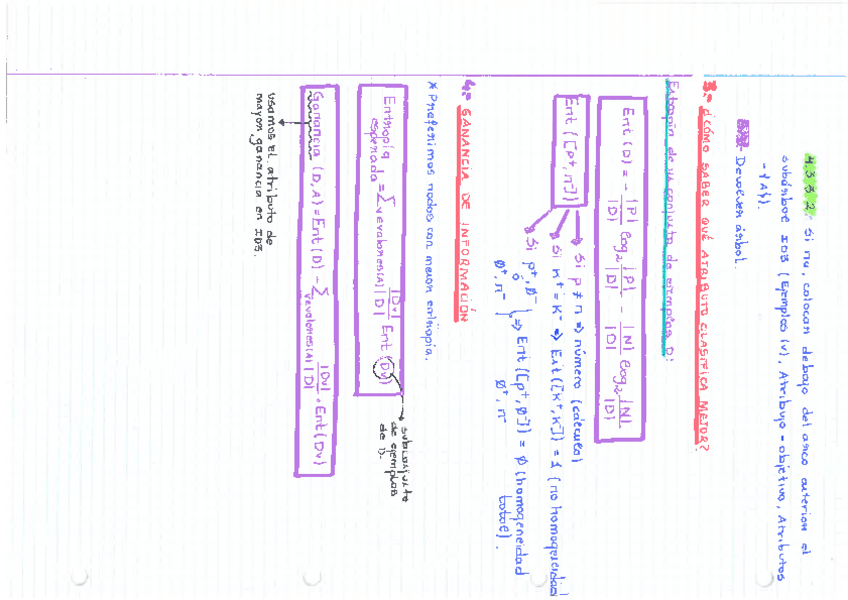 4.3.3.2.- Si no, colocar debajo del arco anterior el
subárbol ID3 (Ejemplos (v), Atributo - objetivo, Atributos
- {A}).
Devolver árbol.
3.- ¿CÓMO SABER QUÉ ATRIBUTO CLASIFICA MEJOR?
Entropía de un conjunto de ejemplos D:
Ent (D) = - |P|/|D| log₂ |P|/|D| - |N|/|D| log₂ |N|/|D|
Ent ([p⁺, n⁻])
Si p ≠ n ⇒ número (cálculo)
Si k⁺ = k⁻ ⇒ Ent ([k⁺, k⁻]) = 1 (no homogeneidad)
Si p⁺, ∅⁻ ó ∅⁺, n⁻ } ⇒ Ent ([p⁺, ∅⁻]) = ∅ (homogeneidad
∅⁺, n⁻ total).
4.- GANANCIA DE INFORMACIÓN
* Preferimos nodos con menor entropía.
Entropía esperada = ∑ v∈valores(A) |Dv|/|D| Ent (Dv)
subconjunto
de ejemplos
de D.
Ganancia (D, A) = Ent (D) - ∑ v∈valores(A) |Dv|/|D| · Ent (Dv)
usamos el atributo de
mayor ganancia en ID3.